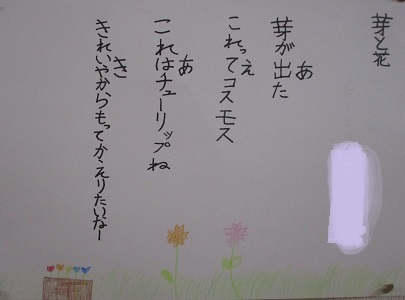 芽と花
あ
芽が出た
え
これってコスモス
あ
これはチューリップね
き
きれいやからもってかえりたいなー